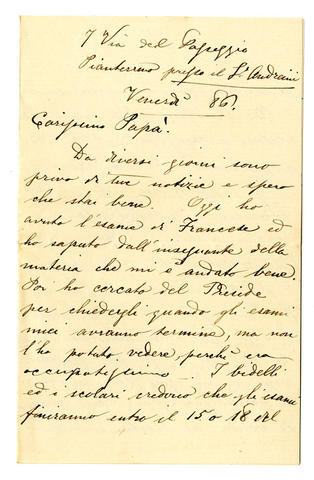 7 Via del Passeggio
Pianterreno presso il Sr. Andreini
Venerdì 86.
Carissimo Papà!
Da diversi giorni sono
privo di tue notizie e spero
che stai bene. Oggi ho
avuto l'esame di Francese ed
ho saputo dall'insegnante della
materia che mi è andato bene.
Poi ho cercato del Preside
per chiedergli quando gli esami
miei avranno termine, ma non
l'ho potuto vedere, perchè era
occupatissimo. I bidelli
ed i scolari credono che gli esami
finiranno entro il 15 o 18 del